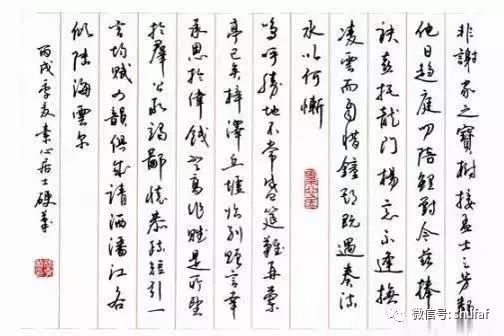 非謝家之寶樹接孟士之芳鄰
他日趨庭叨陪鯉對今茲捧
袂喜托龍門楊意不逢撫
凌雲而自惜鍾期既遇奏流
水以何慚
嗚呼勝地不常盛筵難再蘭
亭已矣梓澤丘墟臨別贈言幸
承恩於偉餞登高作賦是所望
於羣公敢竭鄙懷恭疏短引一
言均賦四韻俱成請洒潘江各
傾陸海雲尔
丙戌季夏素心居士硬筆
微信号: shufaf